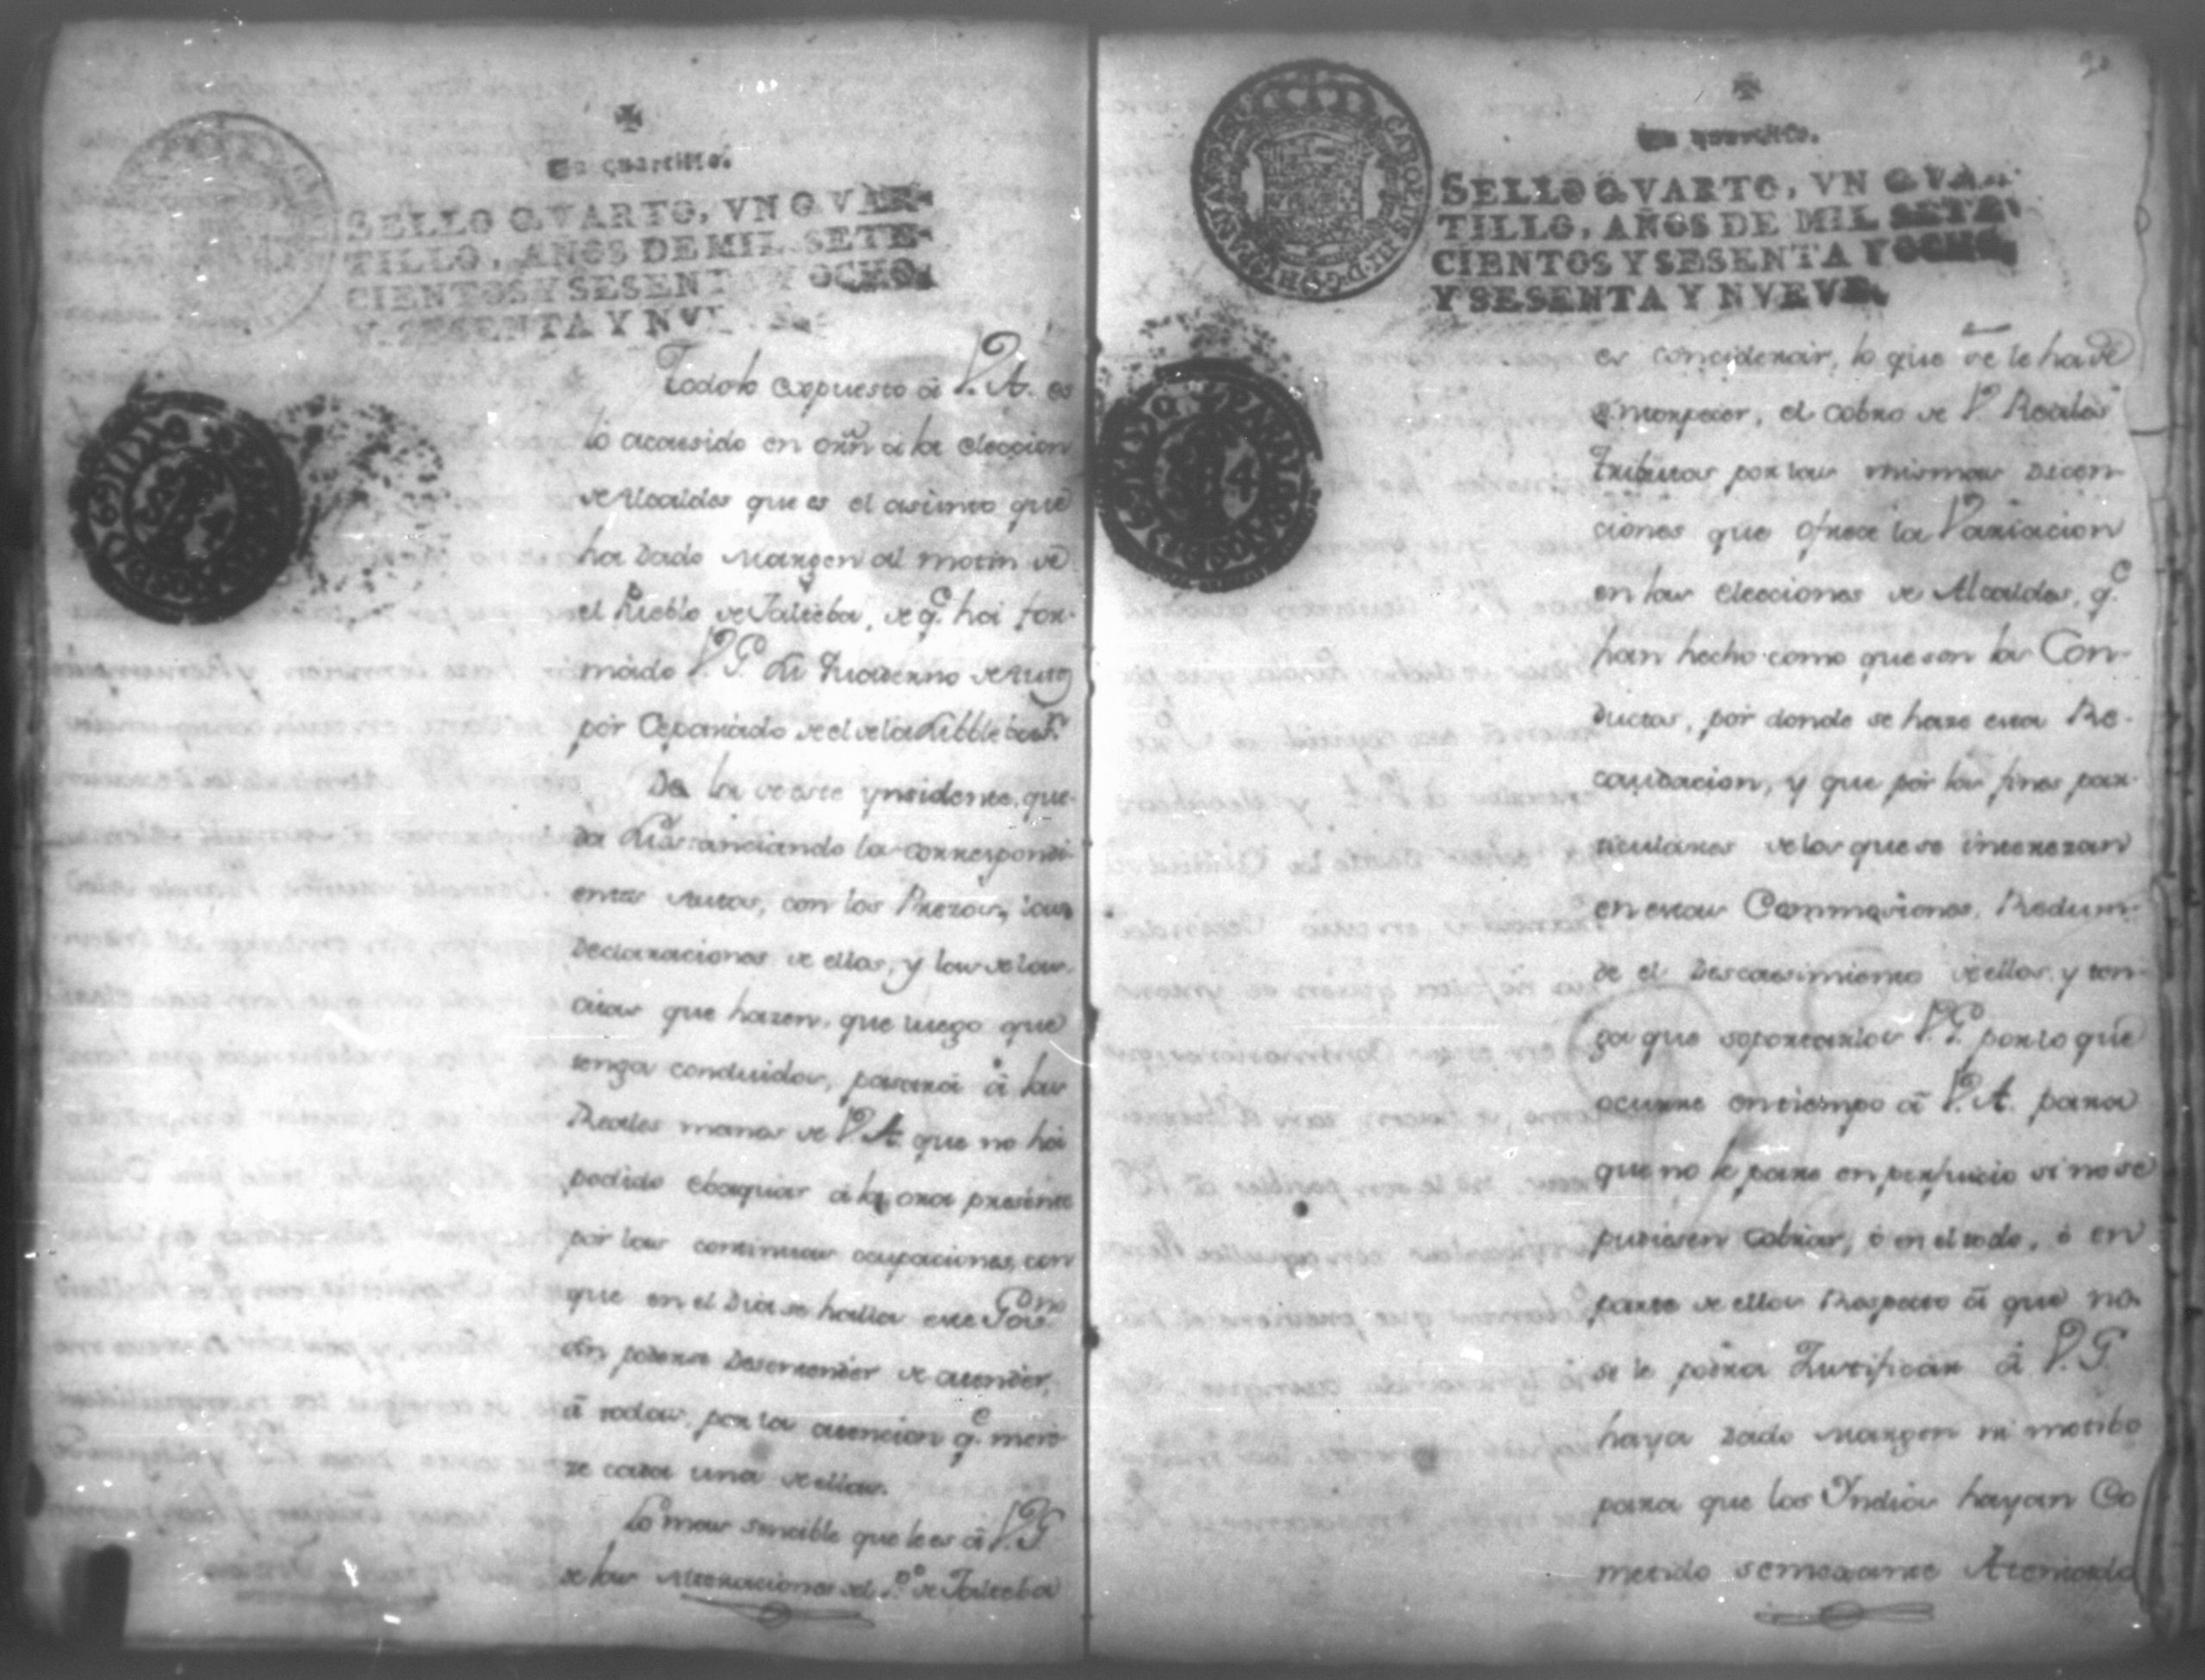 Un quartillo.
SELLO QVARTO, VN QVAR-
TILLO, AÑOS DE MIL SETE-
CIENTOS Y SESENTA Y OCHO,
Y SESENTA Y NVEVE.
Todo lo expuesto â V.A. es
lo acaesido en orñ â la eleccion
de Alcaldes que es el asumto que
ha dado margen al motin de
el Pueblo de Jalteba, de q.e ha for-
mado V.G. Quaderno de autos
por Ceparado de el de la
De la de este yncidente, que-
da Sustanciando los correspondi-
entes Autos, con los Rezos, las
Declaraciones de ellos, y las de las
citas que hazen, que luego que
tenga conduidos, pasará â las
Reales manos de V.A. que no ha
podido ebaquar â la ora presente
por las continuas ocupaciones, con
que en el dia se halla este Gov.no
sin poderse Desentender de atender,
â todas, por la atencion q.e mere-
ze cada una de ellas.
Lo mas sencible que le es â V.G
de las Alteraciones del P.o de Jalteba
Un quartillo.
SELLO QVARTO, VN QVAR-
TILLO, AÑOS DE MIL SETE-
CIENTOS Y SESENTA Y OCHO,
Y SESENTA Y NVEVE.
es conciderar, lo que se le ha de
emorpecer, el cobro de V.s Reales
tributos por las mismas Dicen-
ciones que ofrece la Variacion
en las elecciones de Alcaldes, q.e
han hecho como que son los Con-
ductos, por donde se haze esta Re-
caudacion, y que por los fines par-
ticulares de los que se interezan
en estas Conmociones, Redun-
de el Descaesimiento de ellos, y ten-
ga que soportarlos V.G. por lo que
ocurre en tiempo â V.A. para
que no le pare en perjuicio si no se
pudiesen cobrar, ó en el todo, ó en
parte de ellos Respecto â que no
se le podra Justificar â V.G.
haya dado margen ni motibo
para que los Indios hayan Co
metido semexante Atentado